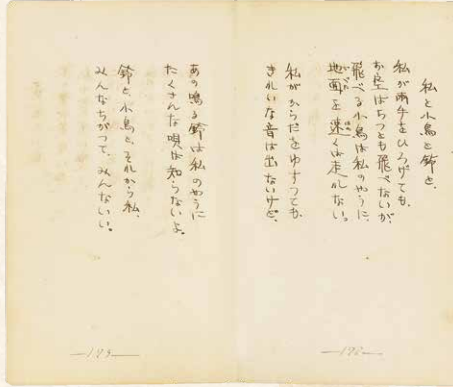 私と小鳥と鈴と、
私が両手をひろげても、
お空はちつとも飛べないが、
飛べる小鳥は私のやうに、
地面を速くは走れない。
私がからだをゆすつても、
きれいな音は出ないけど、
—192—
あの鳴る鈴は私のやうに
たくさんな唄は知らないよ。
鈴と、小鳥と、それから私、
みんなちがつて、みんないい。
—193—